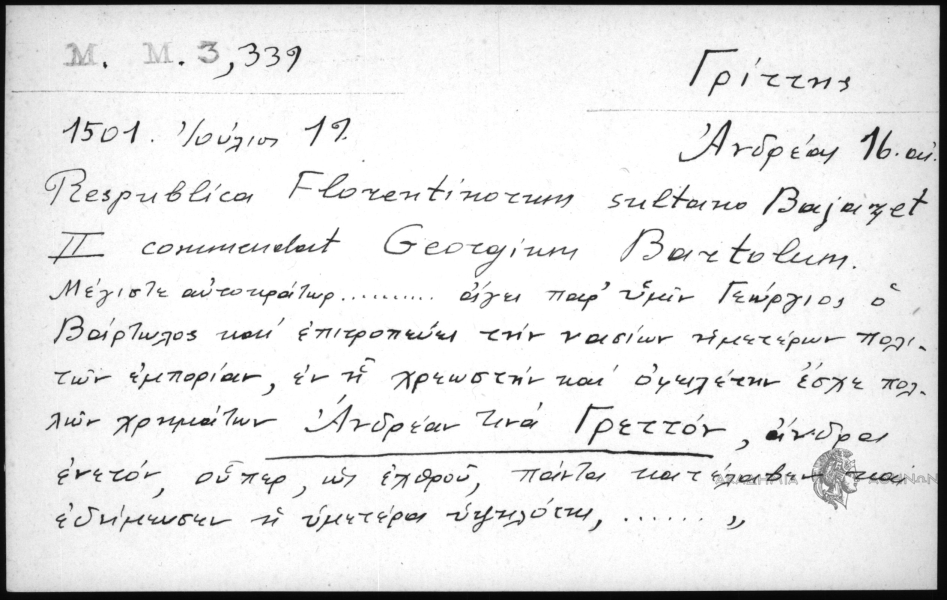 M. M. 3, 339
Γρίττης
1501. Ἰούλιος 19.
Ἀνδρέας 16. αἰ.
Respublica Florentinorum sultano Bajazet
II commendat Georgium Bartolum.
Μέγιστε αὐτοκράτωρ.......... ἄγει παρ' ὑμῖν Γεώργιος ὁ
Βάρτωλος καί ἐπιτροπεύει τήν ἡμετέρων πολι-
τῶν ἐμπορίαν, ἐν ᾗ χρεωστήν καί ὀφειλέτην ἔσχε πολ-
λῶν χρημάτων Ἀνδρέαν τινά Γρεττόν, ἄνδρα
ἐνετόν, οὗπερ, ὡς ἐχθροῦ, πάντα κατέλαβεν καί
ἐδήμευσεν ἡ ὑμετέρα ὑψηλότης, ...... „
ΑΚΑΔΗΜΙΑ ΑΘΗΝΩΝ